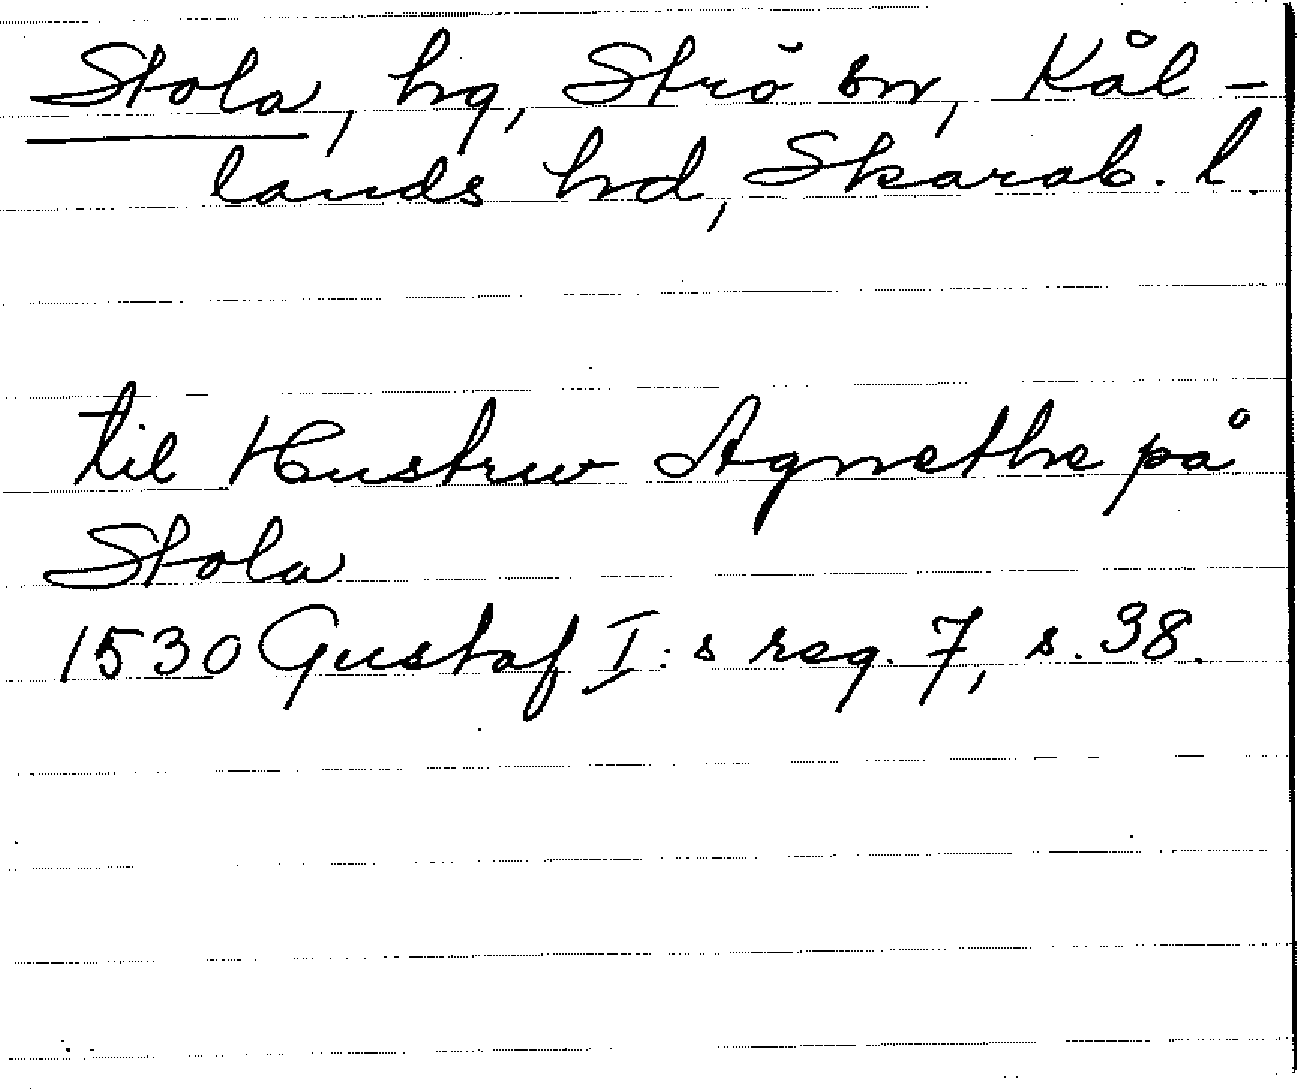 Stola, hg, Strö sn, Kål-
lands hd, Skarab. l.
til Hustrw Agnethe på
Stola
1530 Gustaf I:s reg. 7, s. 38.